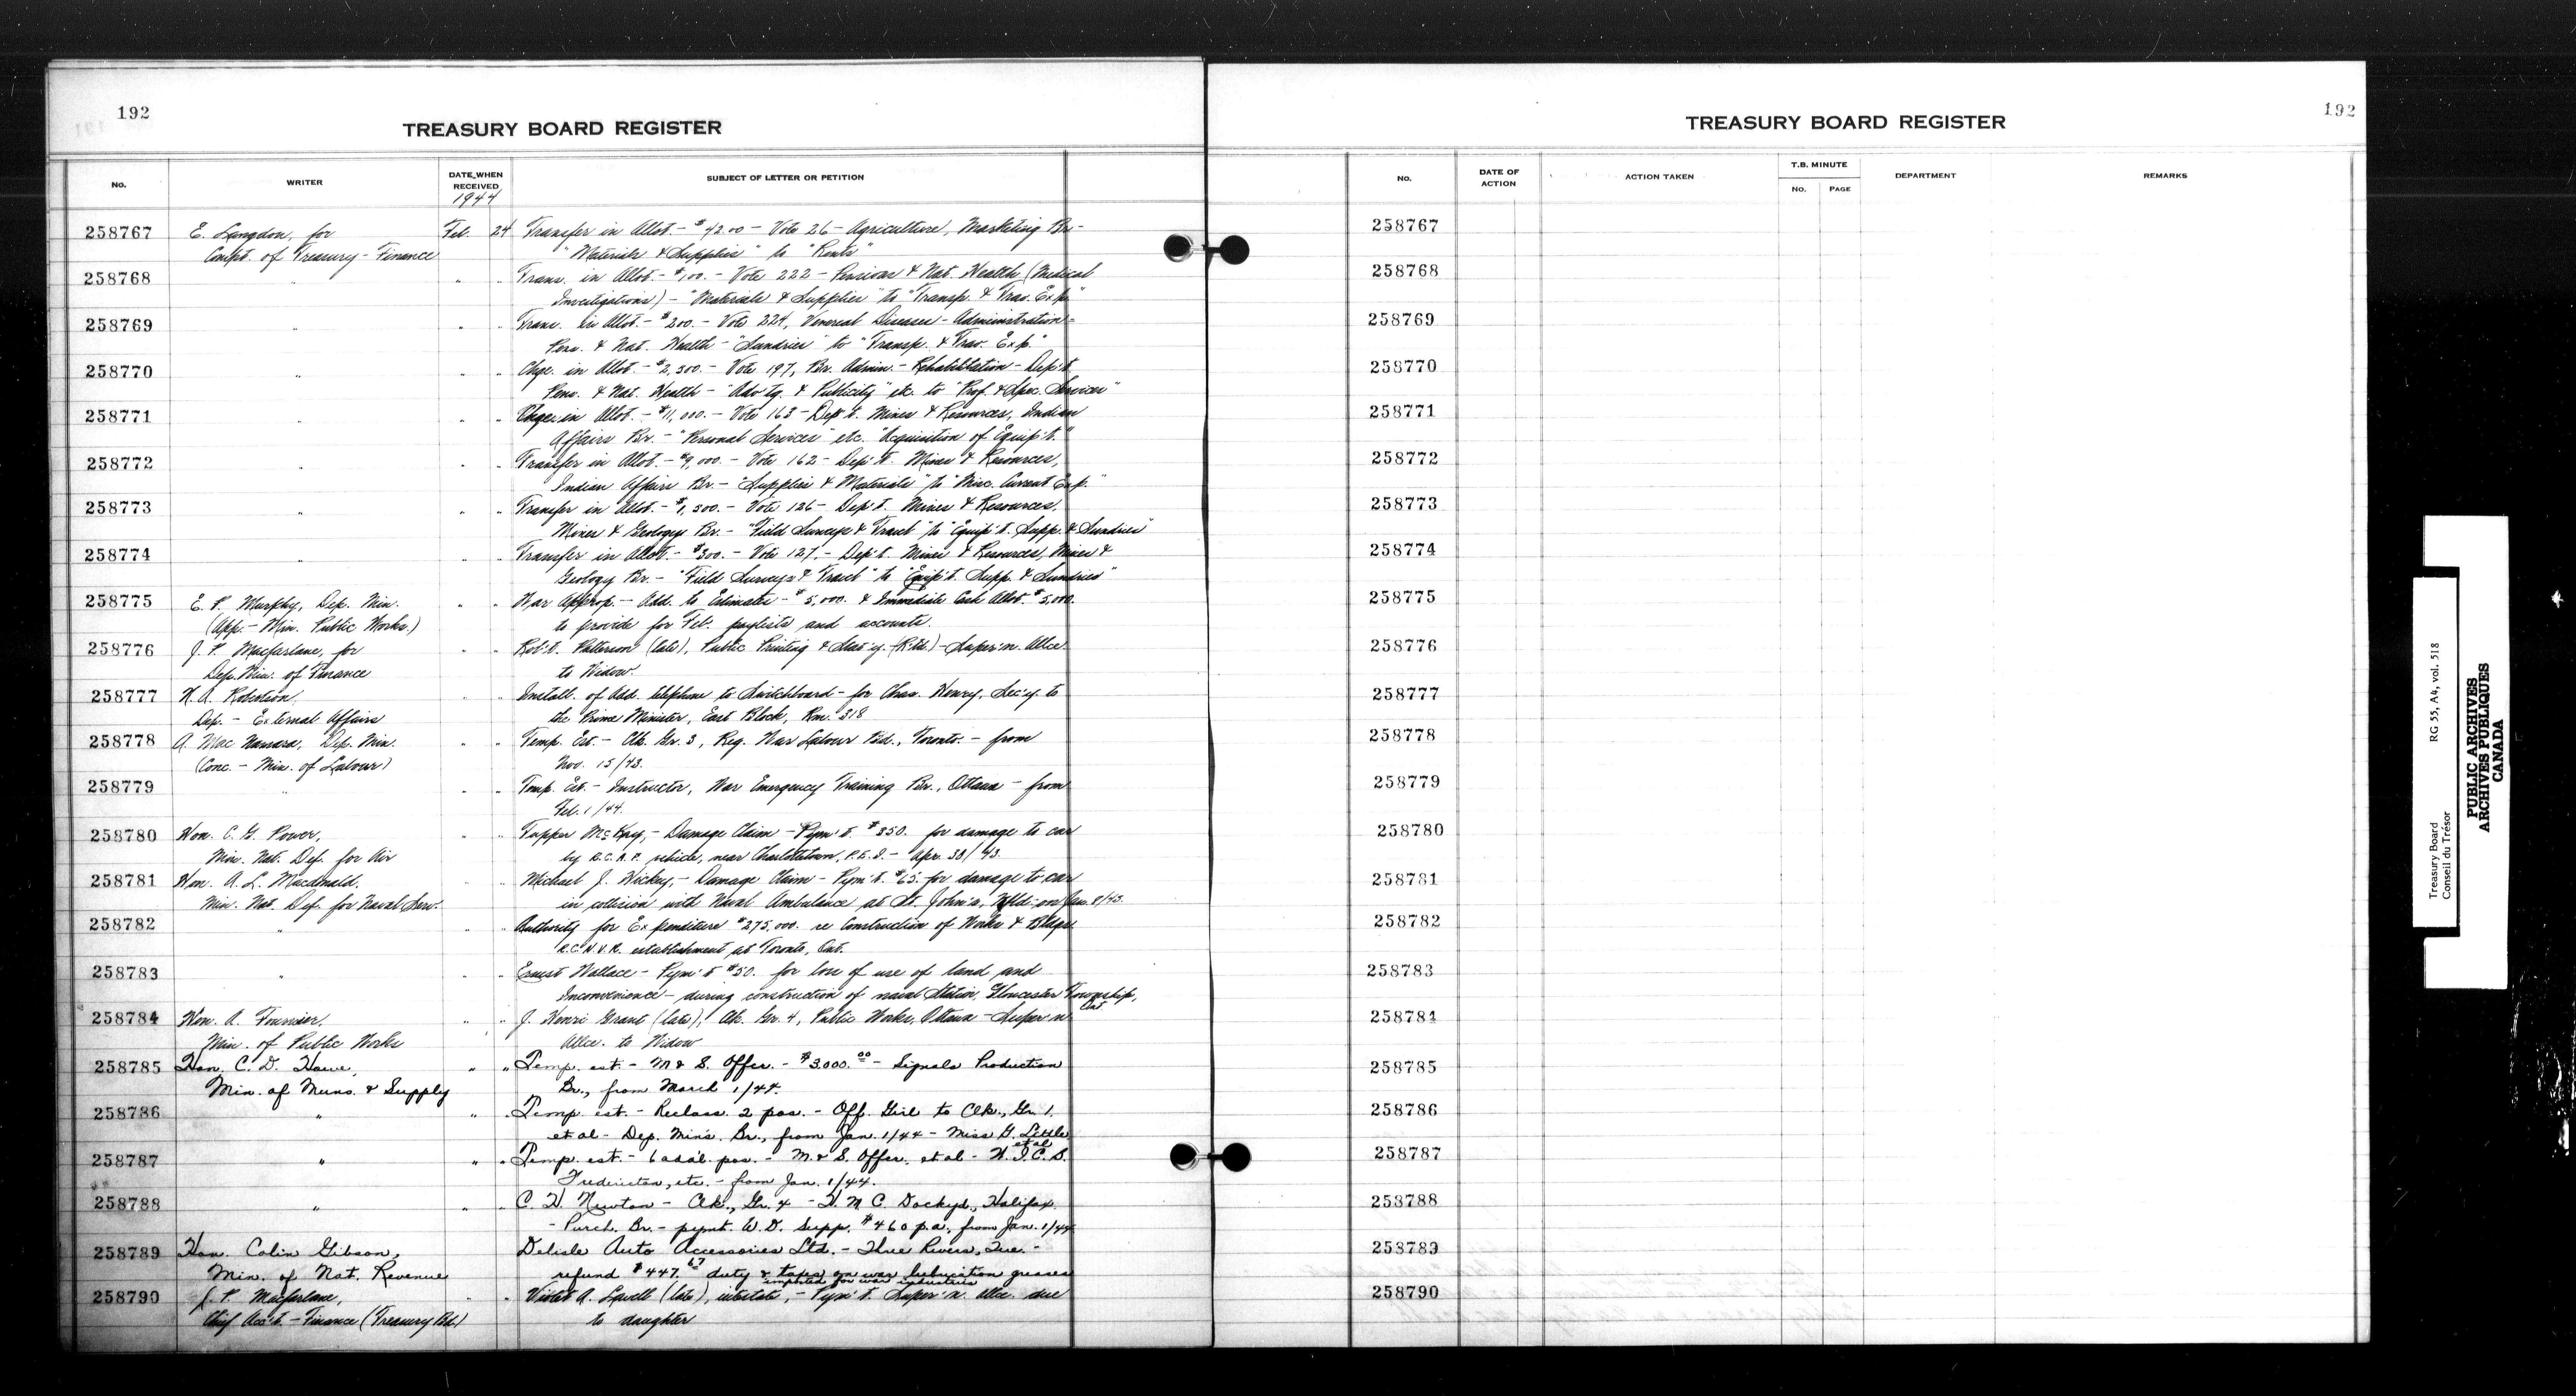 192
TREASURY BOARD REGISTER
No.
WRITER
DATE WHEN RECEIVED
SUBJECT OF LETTER OR PETITION
1944
258767 E. Langdon, for Feb. 24 Transfer in Allot. - $4200 - Vote 26 - Agriculture, Marketing Br. -
Compt. of Treasury - Finance "Materials & Supplies" to "Rents"
258768 " " " Trans. in Allot. - $100. - Vote 222 - Pensions & Nat. Health (Medical
Investigations) - "Materials & Supplies" to "Transp. & Trav. Exp."
258769 " " " Trans. in Allot. - $200. - Vote 224, Venereal Diseases - Administration -
Pens. & Nat. Health - "Sundries" to "Transp. & Trav. Exp."
258770 " " " Chge. in Allot. - $2,500. - Vote 197, Br. Admin. - Rehabilitation - Dep't.
Pens. & Nat. Health - "Adv'tg. & Publicity" etc. to "Prof. & Spec. Services"
258771 " " " Chges in Allot. - $11,000. - Vote 163 - Dep't. Mines & Resources, Indian
Affairs Br. - "Personal Services" etc. "Acquisition of Equip't."
258772 " " " Transfer in Allot. - $9,000. - Vote 162 - Dep't. Mines & Resources,
Indian Affairs Br. - "Supplies & Materials" to "Misc. Current Exp."
258773 " " " Transfer in Allot. - $1,500. - Vote 126 - Dep't. Mines & Resources,
Mines & Geology Br. - "Field Surveys & Travel" to "Equip't. Supp. & Sundries"
258774 " " " Transfer in Allot. - $300. - Vote 127. - Dep't. Mines & Resources, Mines &
Geology Br. - "Field Surveys & Travel" to "Equip't. Supp. & Sundries"
258775 E. P. Murphy, Dep. Min. " " War Approp. - Add. to Estimates - $5,000. & Immediate Cash Allot. $5,000.
(App. - Min. Public Works.) to provide for Feb. paylists and accounts.
258776 J. P. Macfarlane, for " " Rob't. Patterson (late), Public Printing & Stat'y. (Rtd.) - Super'n. Allce.
Dep. Min. of Finance to Widow.
258777 N. A. Robertson, " " Install. of Add. telephone to Switchboard - for Chas. Henry, Sec'y to
Dep. - External Affairs the Prime Minister, East Block, Rm. 318
258778 A. MacNamara, Dep. Min. " " Temp. Est. - Clk. Gr. 3, Reg. War Labour Bd., Toronto. - from
(Conc. - Min. of Labour) Nov. 15/43.
258779 " " " Temp. Est. - Instructor, War Emergency Training Br., Ottawa - from
Feb. 1/44.
258780 Hon. C. G. Power, " " Tupper McKay, - Damage Claim - Pym't. $350. for damage to car
Min. Nat. Def. for Air by R.C.A.F. vehicle, near Charlottetown, P.E.I. - Apr. 30/43.
258781 Hon. A. L. Macdonald, " " Michael J. Hickey, - Damage Claim - Pym't. $65. for damage to car
Min. Nat. Def. for Naval Serv. in collision with Naval Ambulance at St. John's, Nfld. on Jan. 8/43.
258782 " " " Authority for Expenditure $275,000. re Construction of Works & Bldgs.
R.C.N.V.R. establishment at Toronto, Ont.
258783 " " " Ernest Wallace - Pym't $50. for loss of use of land and
Inconvenience - during construction of naval Station, Gloucester Township,
Ont.
258784 Hon. A. Fournier, " " J. Henri Grant (late), Clk. Gr. 4, Public Works, Ottawa - Super'n.
Min. of Public Works Allce. to Widow
258785 Hon. C. D. Howe, " " Temp. est. - M & S. Offer. - $3,000.00 - Signals Production
Min. of Muns. & Supply Br., from March 1/44.
258786 " " " Temp. est. - Reclass. 2 pos. - Off. Girl to Clk., Gr. 1.
et al - Dep. Min's. Br., from Jan. 1/44 - Miss G. Little
et al
258787 " " " Temp. est. - 6 add'l. pos. - M. & S. Offer. et al - W.I.C.B.
Fredericton, etc. - from Jan. 1/44.
258788 " " " C. H. Newton - Clk., Gr. 4 - H M C. Dockyd., Halifax.
- Purch. Br. - pymt. W.D. Supp. $460 p.a., from Jan. 1/44
258789 Hon. Colin Gibson, Delisle Auto Accessories Ltd. - Three Rivers, Que. -
Min. of Nat. Revenue refund $447.67 duty & taxes on war lubrication greases
imported for war industries
258790 J. P. Macfarlane, " " Violet A. Lavell (late), intestate, - Pym't. Super'n. allce. due
Chief Acc't. - Finance (Treasury Bd.) to daughter
192
TREASURY BOARD REGISTER
No.
DATE OF ACTION
ACTION TAKEN
T.B. MINUTE
No.
PAGE
DEPARTMENT
REMARKS
258767
258768
258769
258770
258771
258772
258773
258774
258775
258776
258777
258778
258779
258780
258781
258782
258783
258784
258785
258786
258787
258788
258789
258790
Treasury Board RG 55, A4, vol. 518
Conseil du Trésor
PUBLIC ARCHIVES
ARCHIVES PUBLIQUES
CANADA